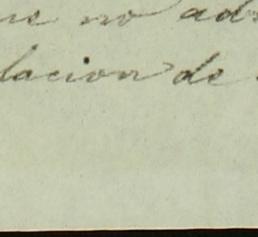 no ad
lacion de